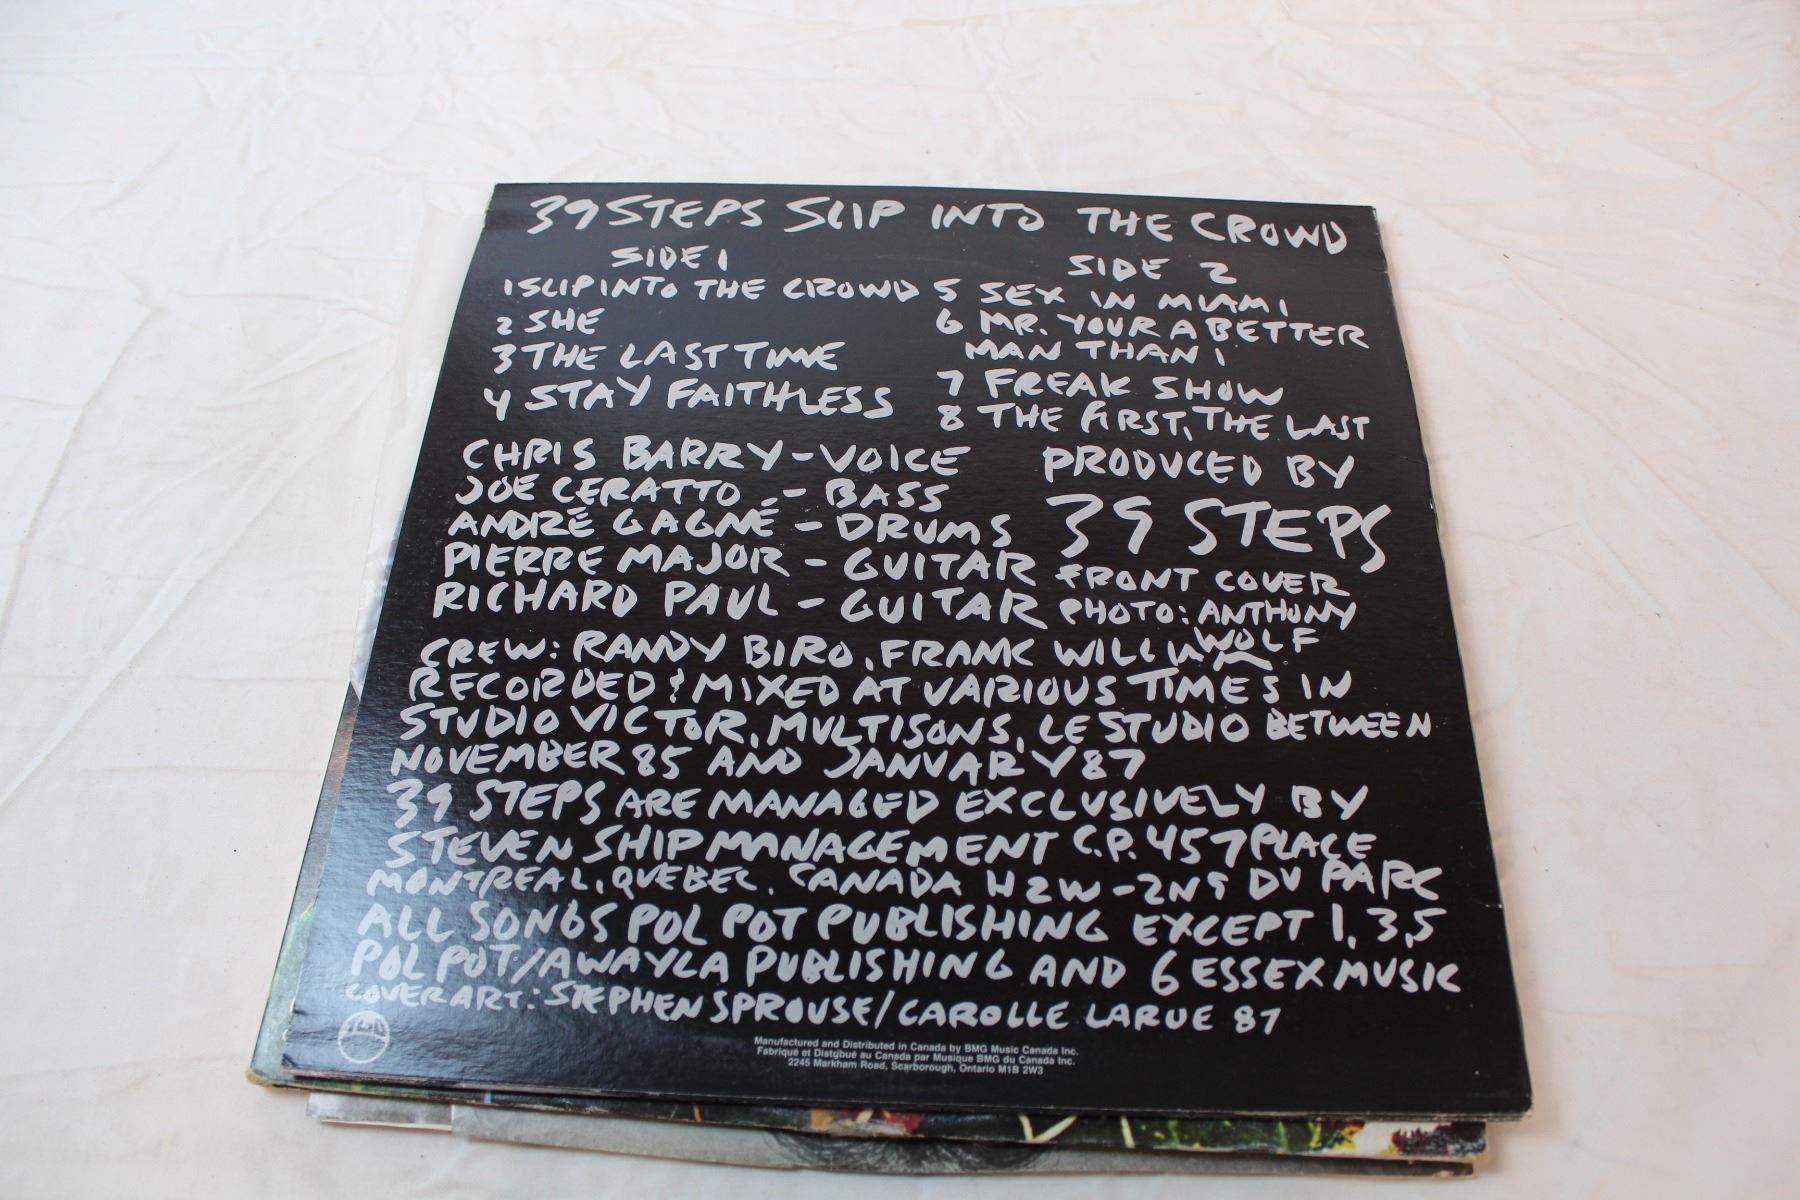 39 STEPS SLIP INTO THE CROWD
SIDE 1
1 SLIP INTO THE CROWD
2 SHE
3 THE LAST TIME
4 STAY FAITHLESS
SIDE 2
5 SEX IN MIAMI
6 MR. YOUR A BETTER
MAN THAN I
7 FREAK SHOW
8 THE FIRST, THE LAST
CHRIS BARRY - VOICE
JOE CERATTO - BASS
ANDRÉ GAGNÉ - DRUMS
PIERRE MAJOR - GUITAR
RICHARD PAUL - GUITAR
PRODUCED BY
39 STEPS
FRONT COVER
PHOTO: ANTHONY
WOLF
CREW: RANDY BIRO, FRANK WILLIAM
RECORDED & MIXED AT VARIOUS TIMES IN
STUDIO VICTOR, MULTISONS, LE STUDIO BETWEEN
NOVEMBER 85 AND JANUARY 87
39 STEPS ARE MANAGED EXCLUSIVELY BY
STEVEN SHIP MANAGEMENT C.P. 457 PLACE
MONTREAL, QUEBEC, CANADA H2W-2N9 DU PARC
ALL SONGS POL POT PUBLISHING EXCEPT 1, 3, 5
POL POT/AWAYLA PUBLISHING AND 6 ESSEX MUSIC
COVER ART: STEPHEN SPROUSE/CAROLLE LARUE 87
Manufactured and Distributed in Canada by BMG Music Canada Inc.
Fabriqué et Distribué au Canada par Musique BMG du Canada Inc.
2245 Markham Road, Scarborough, Ontario M1B 2W3